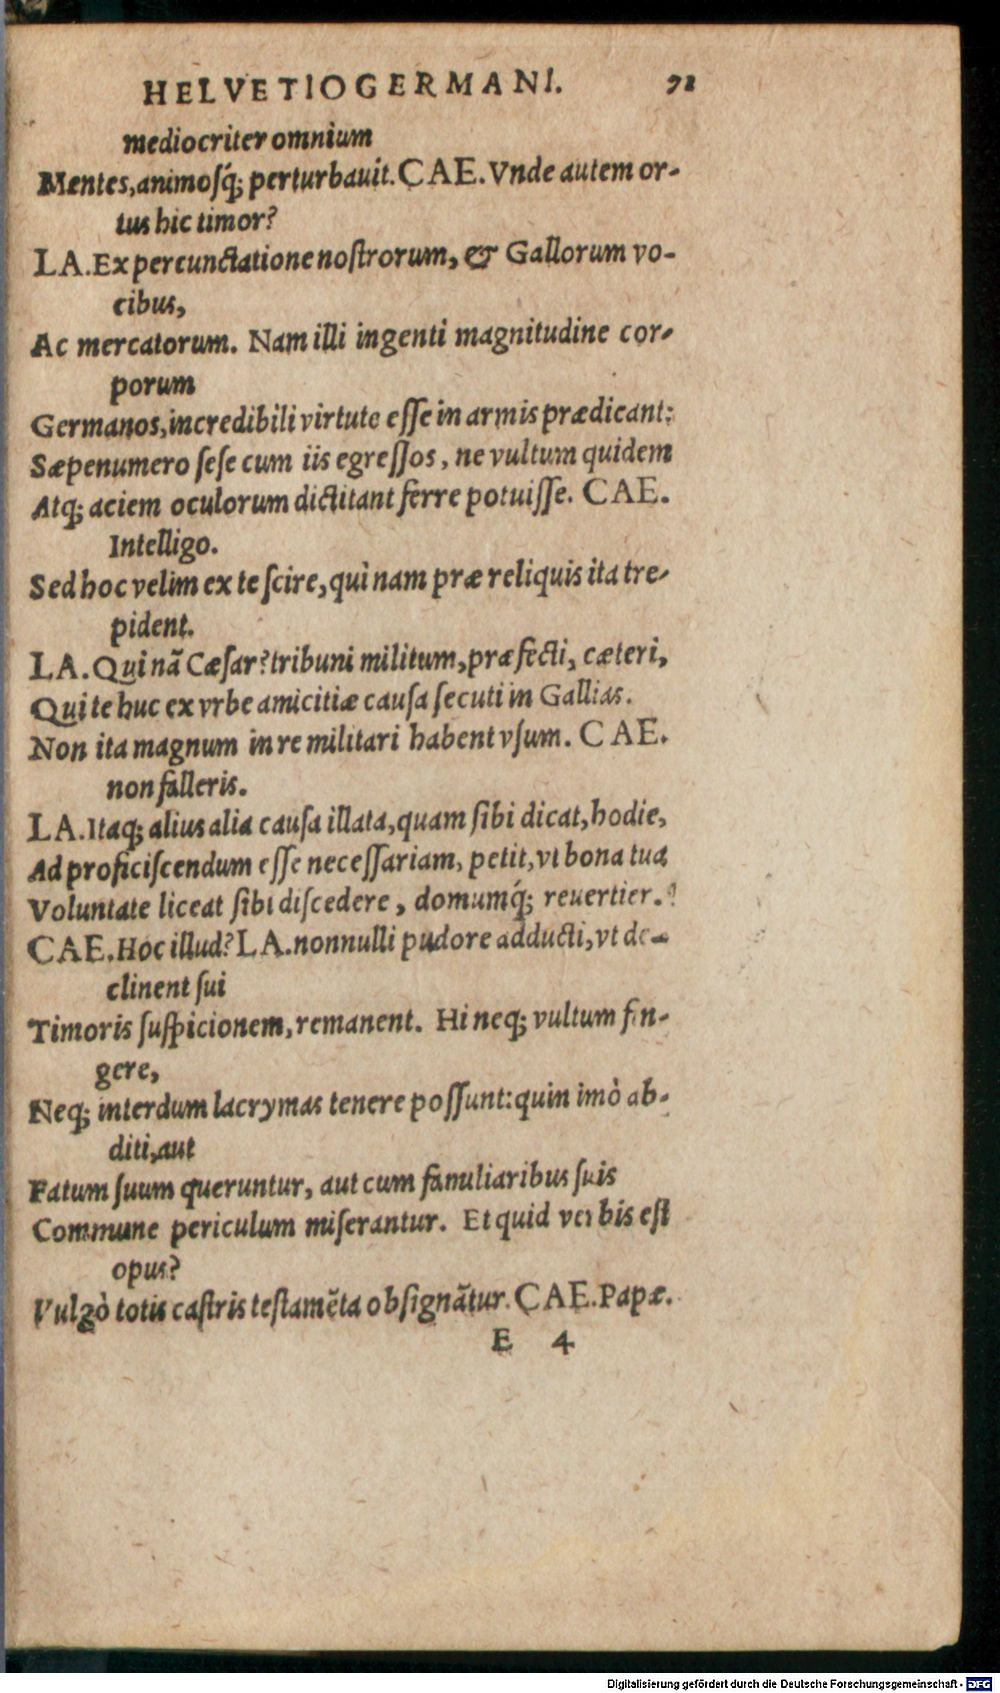 HELVETIOGERMANI. 71
mediocriter omnium
Mentes, animosq́; perturbauit. CAE. Vnde autem or-
tus hic timor?
LA. Ex percunctatione nostrorum, & Gallorum vo-
cibus,
Ac mercatorum. Nam illi ingenti magnitudine cor-
porum
Germanos, incredibili virtute eſſe in armis prædicant:
Sæpenumero ſeſe cum iis egreſſos, ne vultum quidem
Atq; aciem oculorum dictitant ferre potuiſſe. CAE.
Intelligo.
Sed hoc velim ex te ſcire, quì nam præ reliquis ita tre-
pident.
LA. Qui nã Cæſar? tribuni militum, præfecti, cæteri,
Qui te huc ex vrbe amicitiæ cauſa ſecuti in Gallias.
Non ita magnum in re militari habent vſum. CAE.
non falleris.
LA. Itaq; alius alia cauſa illata, quam ſibi dicat, hodie,
Ad proficiſcendum eſſe neceſſariam, petit, vt bona tua
Voluntate liceat ſibi diſcedere, domumq́; reuertier.
CAE. Hoc illud? LA. nonnulli pudore adducti, vt de-
clinent ſui
Timoris ſuſpicionem, remanent. Hi neq; vultum fin-
gere,
Neq; interdum lacrymas tenere poſſunt: quin imò ab-
diti, aut
Fatum ſuum queruntur, aut cum familiaribus ſuis
Commune periculum miſerantur. Et quid verbis eſt
opus?
Vulgò totis caſtris teſtamẽta obſignãtur. CAE. Papæ.
E 4
Digitalisierung gefördert durch die Deutsche Forschungsgemeinschaft - DFG